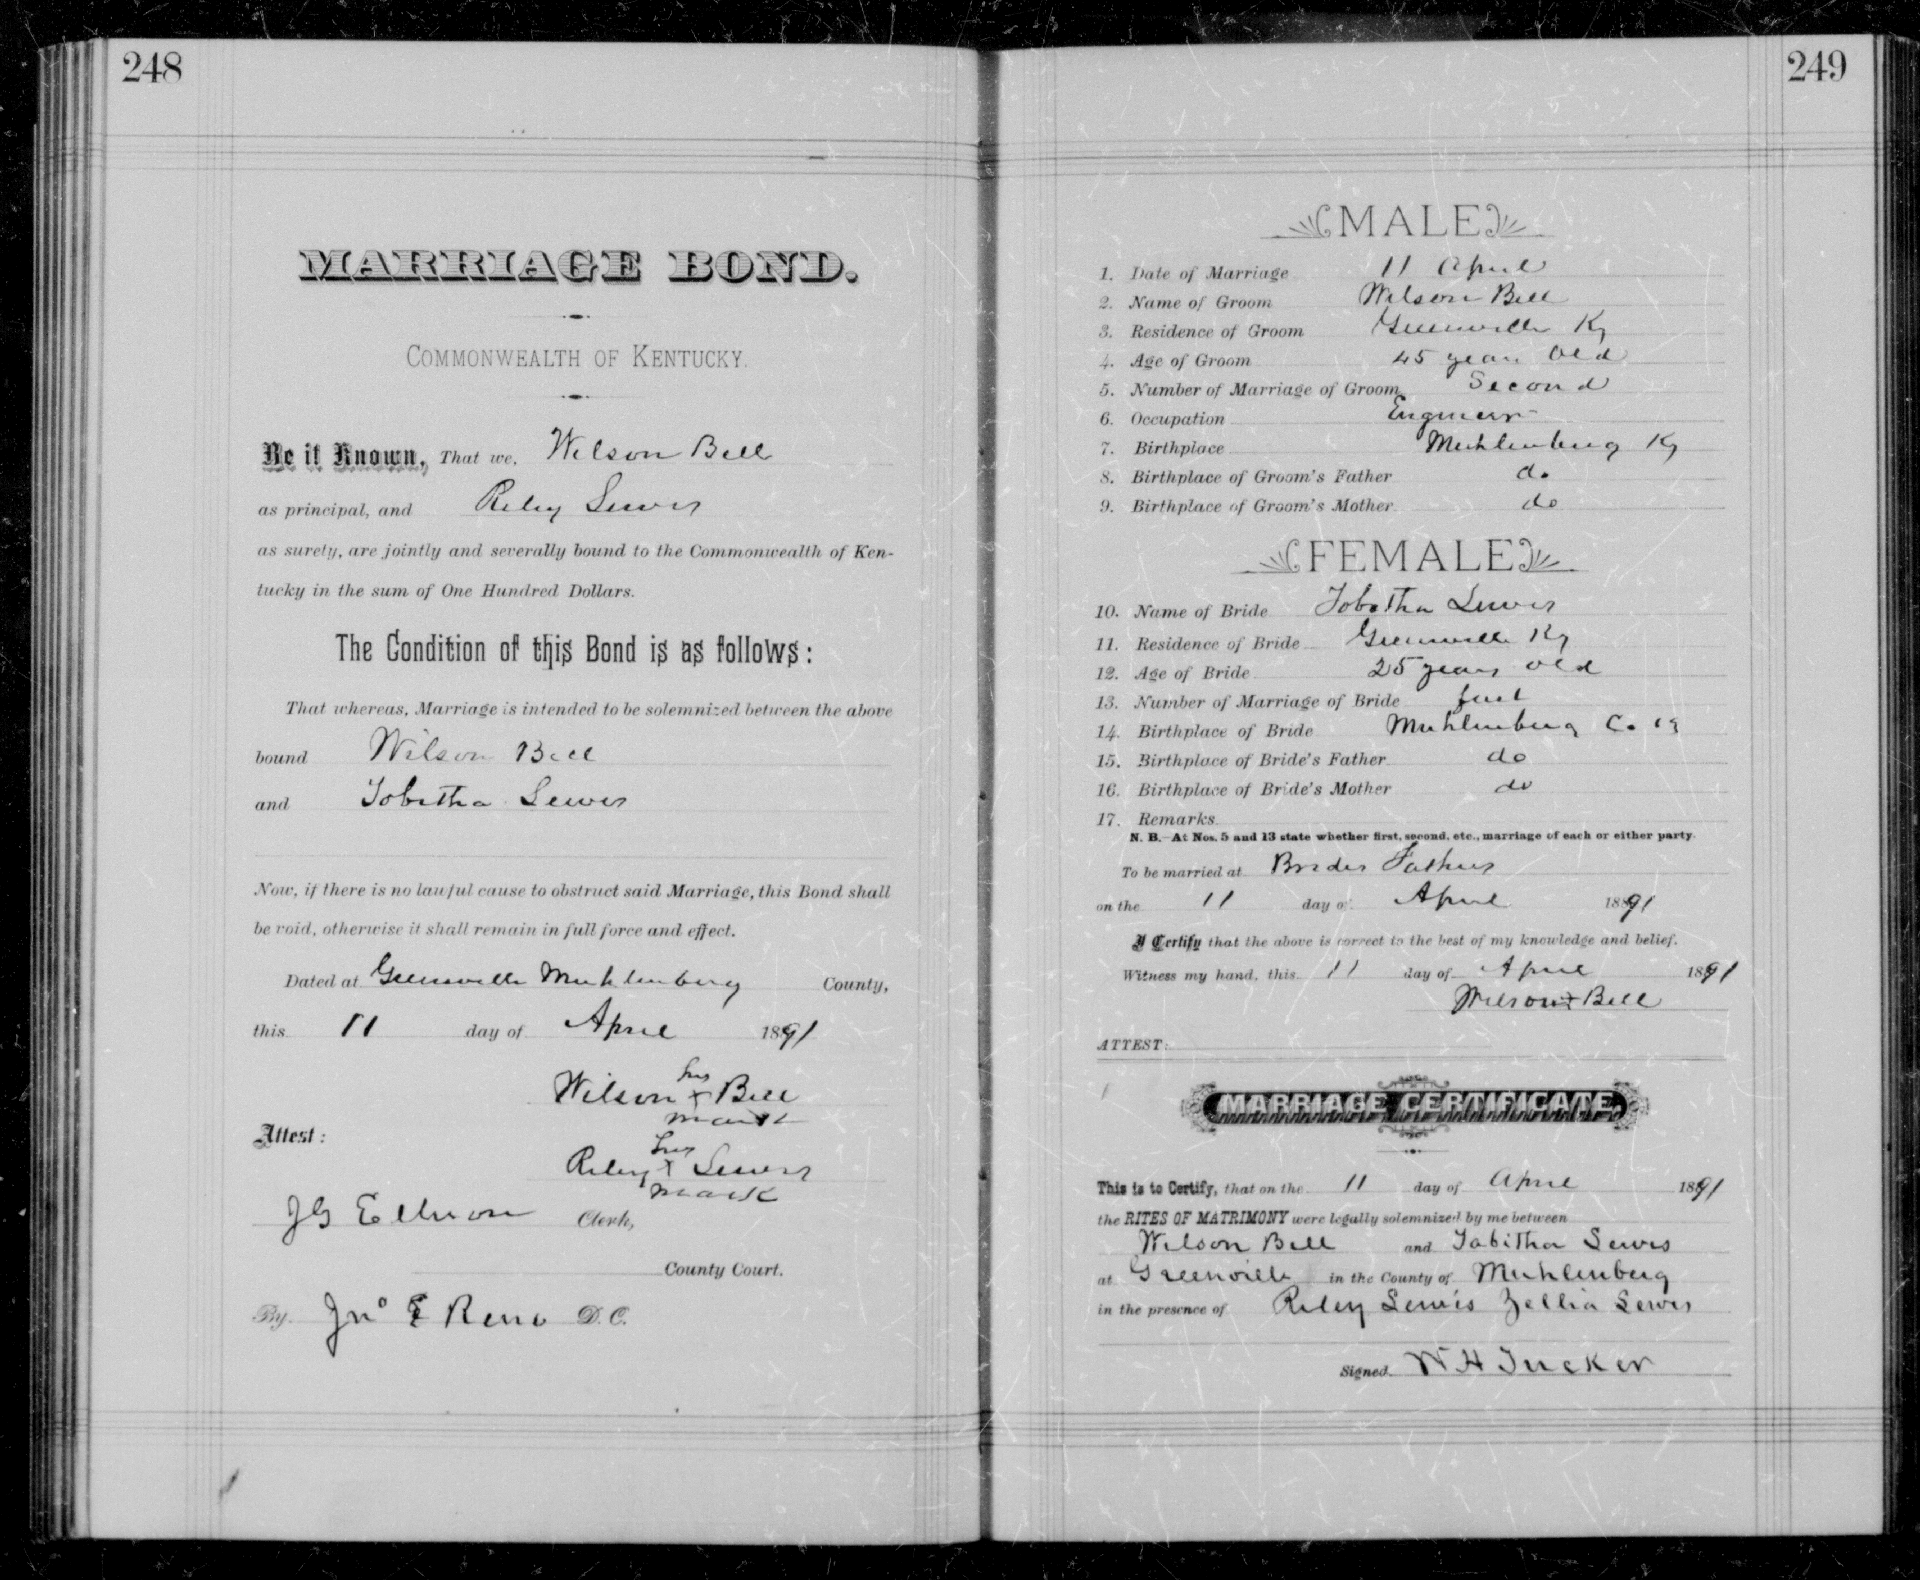 248
MARRIAGE BOND.
COMMONWEALTH OF KENTUCKY.
Be it Known, That we, Wilson Bell
as principal, and Riley Lewis
as surety, are jointly and severally bound to the Commonwealth of Ken-
tucky in the sum of One Hundred Dollars.
The Condition of this Bond is as follows:
That whereas, Marriage is intended to be solemnized between the above
bound Wilson Bell
and Tobitha Lewis
Now, if there is no lawful cause to obstruct said Marriage, this Bond shall
be void, otherwise it shall remain in full force and effect.
Dated at Greenville Muhlenburg County,
this 11 day of April 1891
his
Wilson x Bell
mark
Attest:
his
Riley x Lewis
mark
J G Ellison Clerk,
County Court.
By Jno E Reno D. C.
249
MALE
1. Date of Marriage 11 April
2. Name of Groom Wilson Bell
3. Residence of Groom Greenville Ky
4. Age of Groom 45 years Old
5. Number of Marriage of Groom Second
6. Occupation Engineer
7. Birthplace Muhlenburg Ky
8. Birthplace of Groom's Father do
9. Birthplace of Groom's Mother do
FEMALE
10. Name of Bride Tobitha Lewis
11. Residence of Bride Greenville Ky
12. Age of Bride 25 years old
13. Number of Marriage of Bride first
14. Birthplace of Bride Muhlenburg Co. Ky
15. Birthplace of Bride's Father do
16. Birthplace of Bride's Mother do
17. Remarks
N. B.—At Nos. 5 and 13 state whether first, second, etc., marriage of each or either party.
To be married at Brides Fathers
on the 11 day of April 1891
I Certify that the above is correct to the best of my knowledge and belief.
Witness my hand, this 11 day of April 1891
Wilson x Bell
ATTEST:
MARRIAGE CERTIFICATE.
This is to Certify, that on the 11 day of April 1891
the RITES OF MATRIMONY were legally solemnized by me between
Wilson Bell and Tabitha Lewis
at Greenville in the County of Muhlenburg
in the presence of Riley Lewis Zellia Lewis
Signed W H Tucker